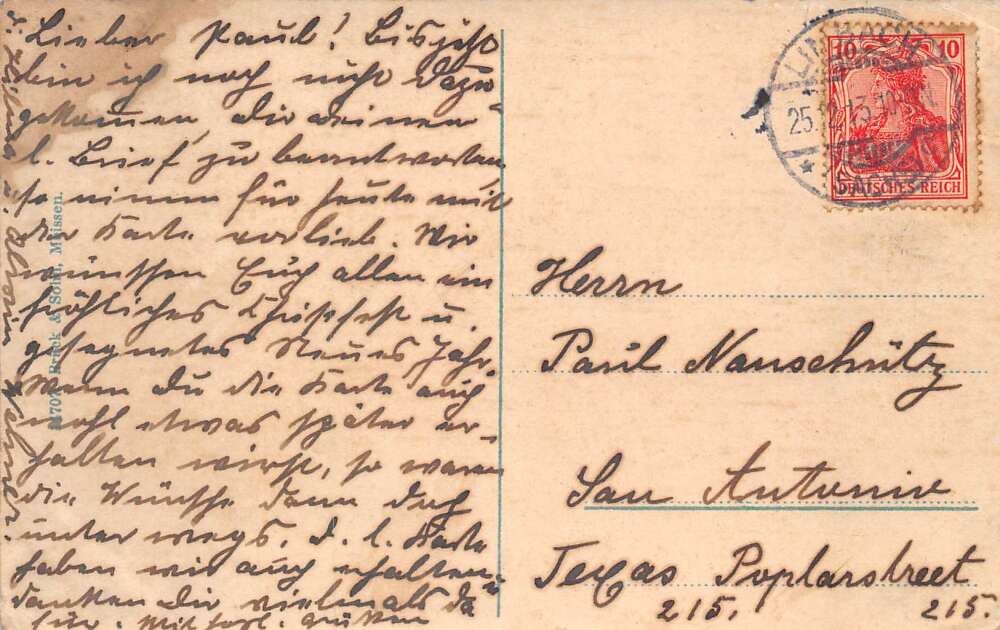 Lieber Paul! Bis jetzt
bin ich noch nicht dazu
gekommen, dir deinen
l. Brief zu beantworten,
so nimm für heute mit
der Karte vorlieb. Wir
wünschen Euch allen ein
fröhliches Christfest u.
gesegnetes Neues Jahr.
Wenn Du die Karte auch
wohl etwas später er-
halten wirst, so waren
die Wünsche dann doch
unterwegs. D. l. Karte
haben wir auch erhalten,
danken Dir vielmals da
für. Mit herzl. Grüßen
Wehner.
11707 Brück & Sohn, Meissen.
LIMBACH
25.12.13. 10
SACHSEN
10 10
DEUTSCHES REICH
Herrn
Paul Nauschütz
San Antonio
Texas Poplarstreet
215. 215.